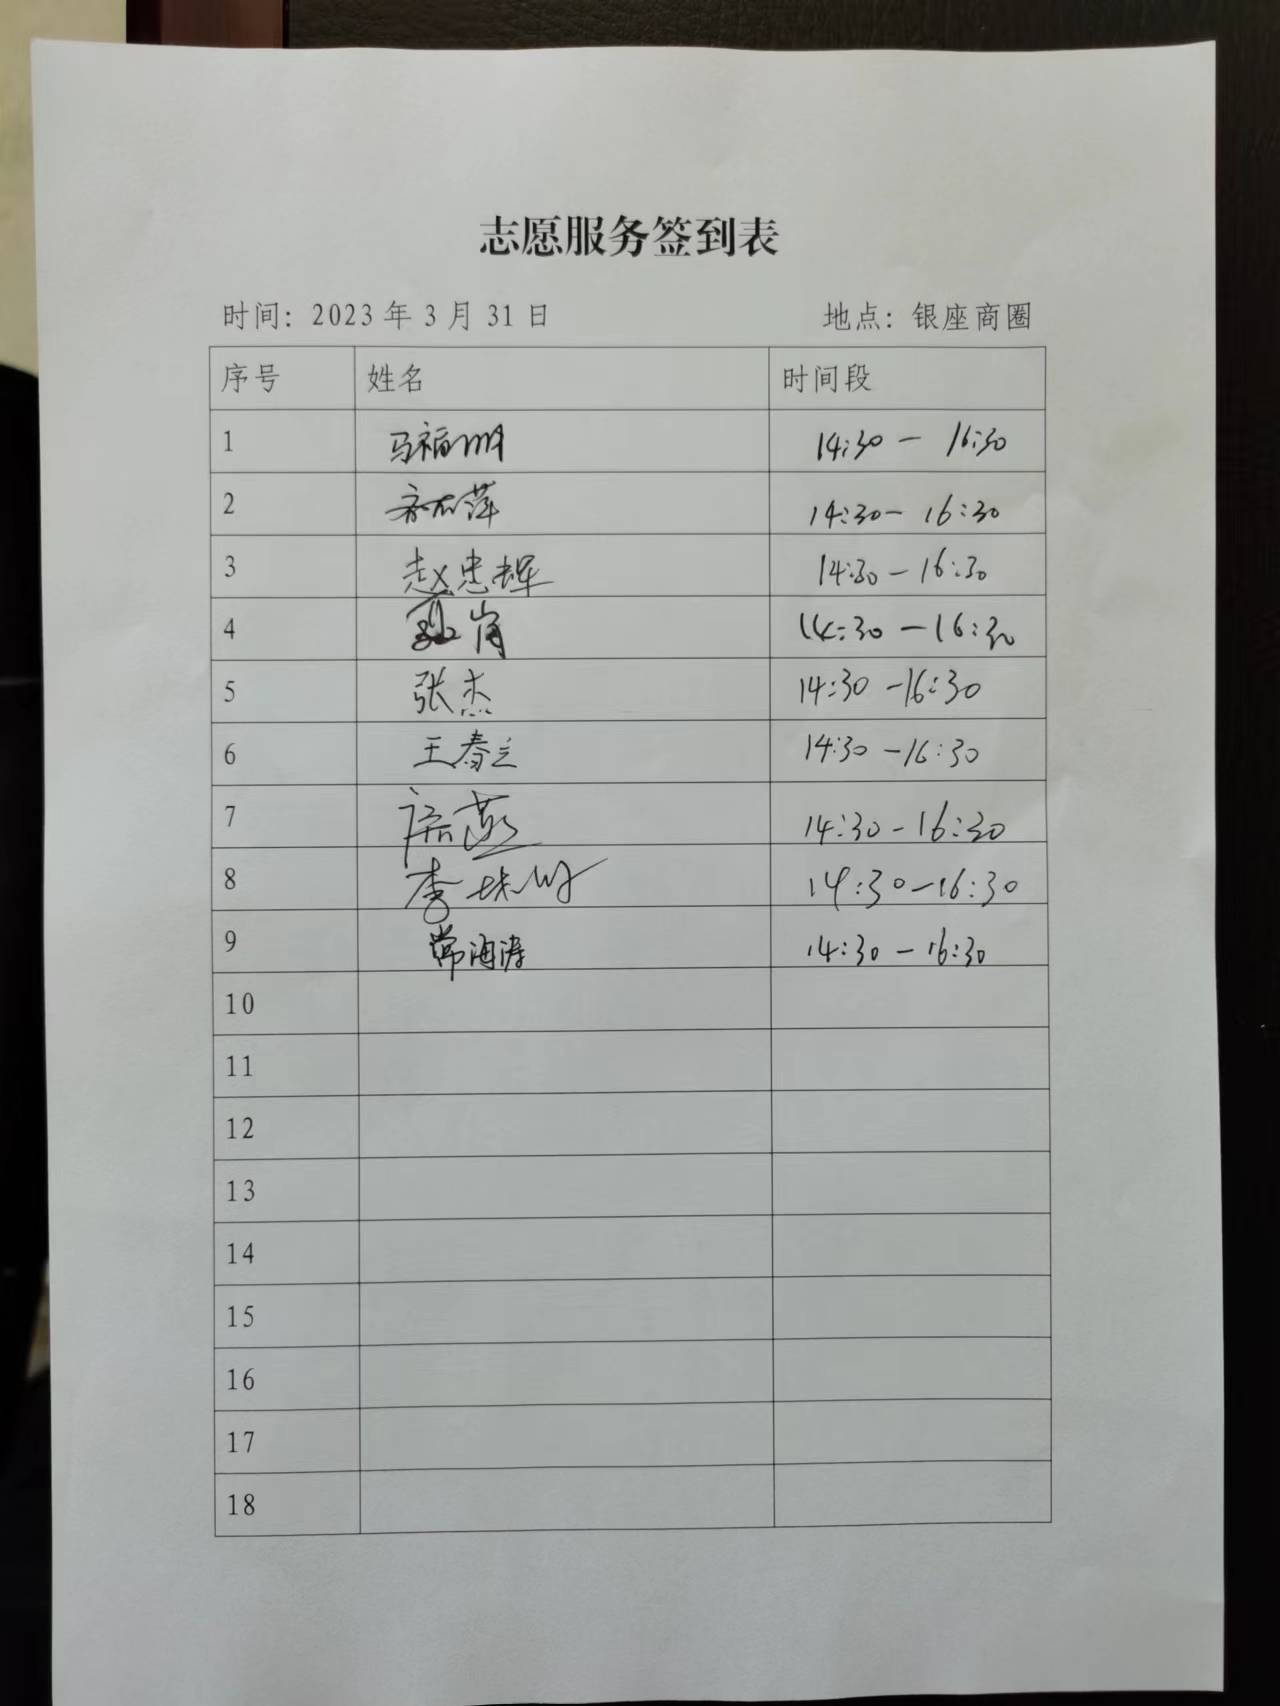 志愿服务签到表
时间：2023年3月31日 地点：银座商圈
序号 姓名 时间段
1 马福 14:30 — 16:30
2 14:30— 16:30
3 赵忠辉 14:30 — 16:30
4 14:30 — 16:30
5 张杰 14:30 —16:30
6 王春立 14:30 —16:30
7 燕 14:30 —16:30
8 李 14:30—16:30
9 常海涛 14:30 — 16:30
10
11
12
13
14
15
16
17
18